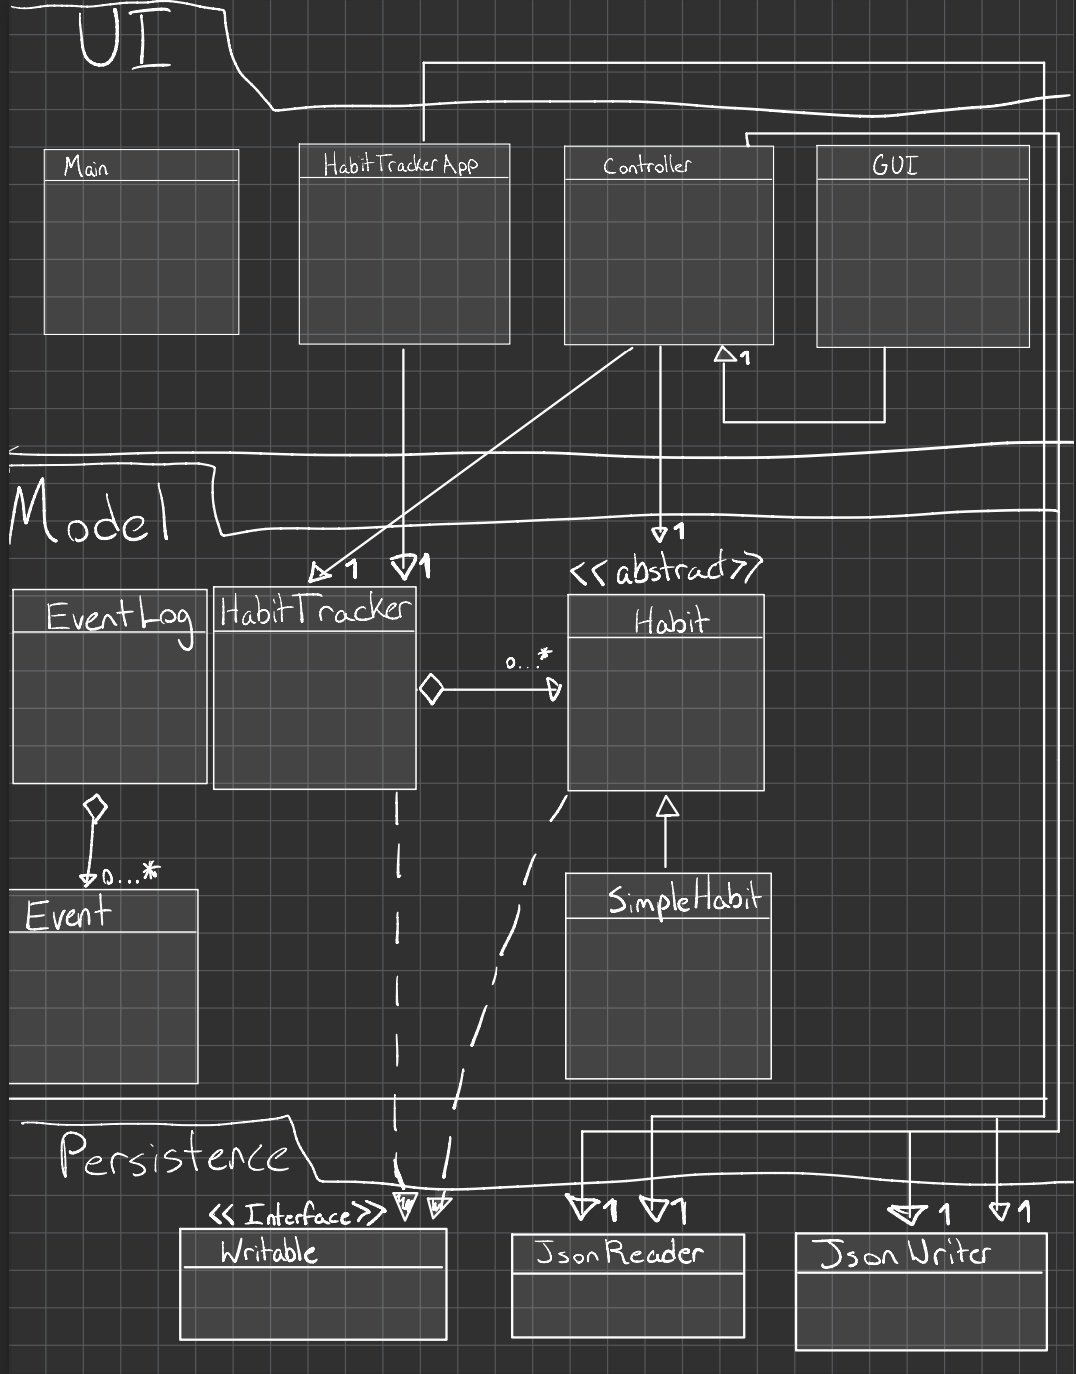 UI
Main
HabitTrackerApp
Controller
GUI
1
Model
1
1
1
<<abstract>>
EventLog
HabitTracker
Habit
0...*
0...*
Event
SimpleHabit
Persistence
<<Interface>>
1
1
1
1
Writable
JsonReader
JsonWriter